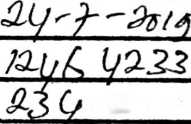 24-7-2019
1246 4233
234